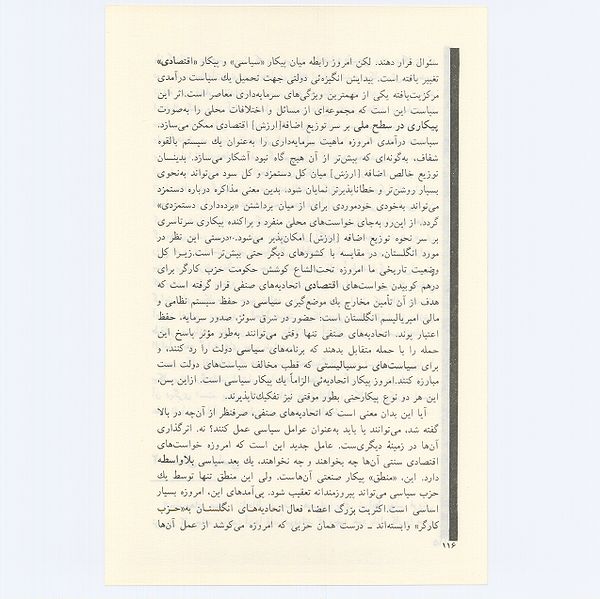 سئوال قرار دهند. لکن امروز رابطه میان پیکار «سیاسی» و پیکار «اقتصادی»
تغییر یافته است. پیدایش انگیزه‌ئی دولتی جهت تحمیل یك سیاست درآمدی
مرکزیت‌یافته یکی از مهمترین ویژگی‌های سرمایه‌داری معاصر است.اثر این
سیاست این است که مجموعه‌ای از مسائل و اختلافات محلی را به‌صورت
پیکاری در سطح ملی بر سر توزیع اضافه[ارزش] اقتصادی ممکن می‌سازد.
سیاست درآمدی امروزه ماهیت سرمایه‌داری را به‌عنوان یك سیستم بالقوه
شفاف، به‌گونه‌ای که بیش‌تر از آن هیچ گاه نبود آشکار می‌سازد. بدینسان
توزیع خالص اضافه [ارزش] میان کل دستمزد و کل سود می‌تواند به‌نحوی
بسیار روشن‌تر و خطاناپذیرتر نمایان شود. بدین معنی مذاکره درباره دستمزد
می‌تواند به‌خودی خودموردی برای از میان برداشتن «برده‌داری دستمزدی»
گردد. از این‌رو به‌جای خواست‌های محلی منفرد و پراکنده بیکاری سرتاسری
بر سر نحوه توزیع اضافه [ارزش] امکان‌پذیر می‌شود.۰درستی این نظر در
مورد انگلستان، در مقایسه با کشورهای دیگر حتی بیش‌تر است.زیرا کل
وضعیت تاریخی ما امروزه تحت‌الشاع کوشش حکومت حزب کارگر برای
درهم کوبیدن خواست‌های اقتصادی اتحادیه‌های صنفی قرار گرفته است که
هدف از آن تأمین مخارج یك موضع‌گیری سیاسی در حفظ سیستم نظامی و
مالی امپریالیسم انگلستان است: حضور در شرق سوئز، صدور سرمایه، حفظ
اعتبار پوند. اتحادیه‌های صنفی تنها وقتی می‌توانند به‌طور مؤثر پاسخ این
حمله را با حمله متقابل بدهند که برنامه‌های سیاسی دولت را رد کنند، و
برای سیاست‌های سوسیالیستی که قطب مخالف سیاست‌های دولت است
مبارزه کنند.امروز پیکار اتحادیه‌ئی الزاماً یك پیکار سیاسی است. ازاین پس،
این هر دو نوع پیکارحتی بطور موقتی نیز تفکیك‌ناپذیرند.
آیا این بدان معنی است که اتحادیه‌های صنفی، صرفنظر از آن‌چه در بالا
گفته شد، می‌توانند یا باید به‌عنوان عوامل سیاسی عمل کنند؟ نه. اثرگذاری
آن‌ها در زمینهٔ دیگری‌ست. عامل جدید این است که امروزه خواست‌های
اقتصادی سنتی آن‌ها چه بخواهند و چه نخواهند، یك بعد سیاسی بلاواسطه
دارد. این، «منطق» پیکار صنعتی آن‌هاست. ولی این منطق تنها توسط یك
حزب سیاسی می‌تواند پیروزمندانه تعقیب شود. پی‌آمدهای این، امروزه بسیار
اساسی است.اکثریت بزرگ اعضاء فعال اتحادیه‌های انگلستان به«حزب
کارگر» وابسته‌اند ــ درست همان حزبی که امروزه می‌کوشد از عمل آن‌ها
۱۱۶